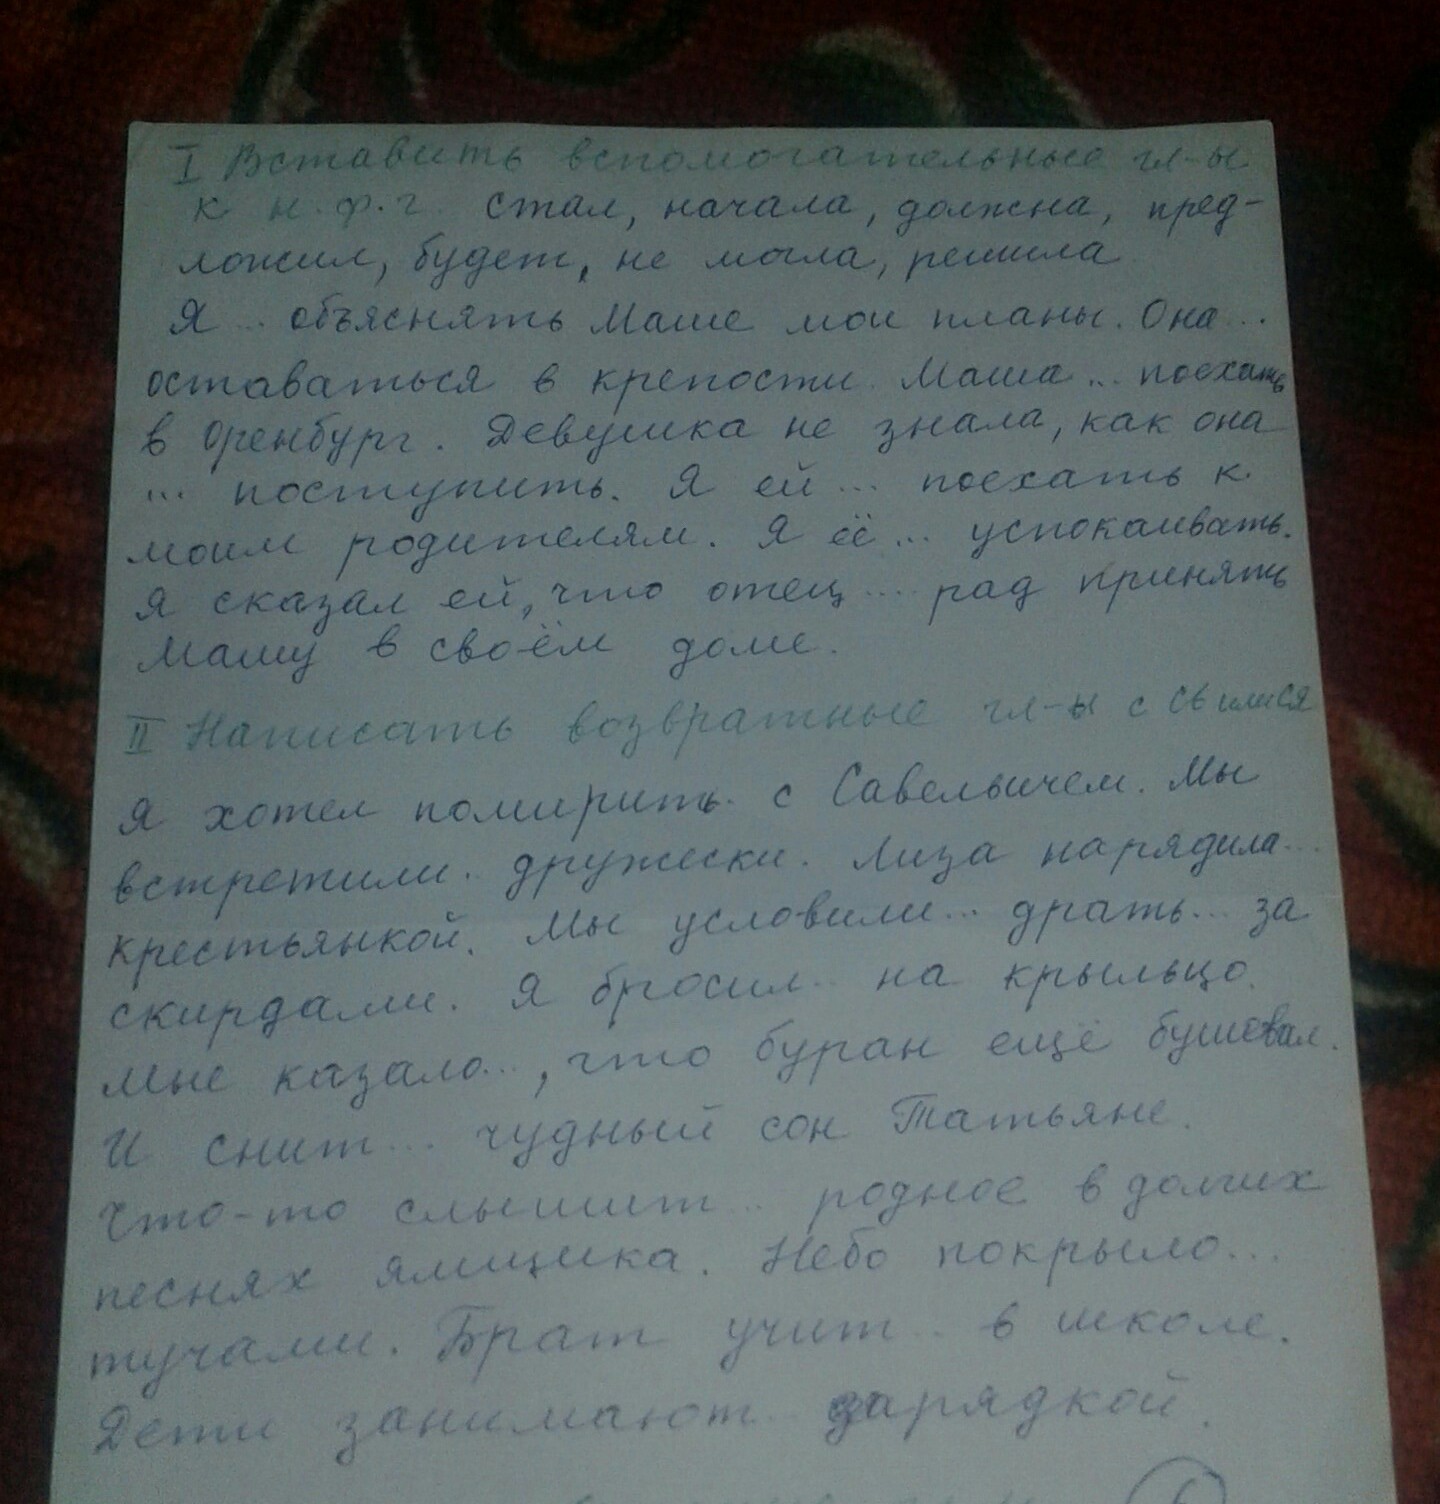 I Вставить вспомогательные гл-ы
к н.ф.г. стал, начала, должна, пред-
ложил, будет, не могла, решила
Я ... объяснять Маше мои планы. Она ...
оставаться в крепости. Маша ... поехать
в Оренбург. Девушка не знала, как она
... поступить. Я ей ... поехать к
моим родителям. Я её ... успокаивать.
Я сказал ей, что отец .... рад принять
Машу в своём доме.
II Написать возвратные гл-ы с сь или ся
Я хотел помирить.. с Савельичем. Мы
встретили.. дружески. Лиза нарядила...
крестьянкой. Мы условили... драть... за
скирдами. Я бросил.. на крыльцо.
Мне казало..., что буран ещё бушевал.
И снит... чудный сон Татьяне.
Что-то слышит... родное в долгих
песнях ямщика. Небо покрыло...
тучами. Брат учит.. в школе.
Дети занимают.. зарядкой.